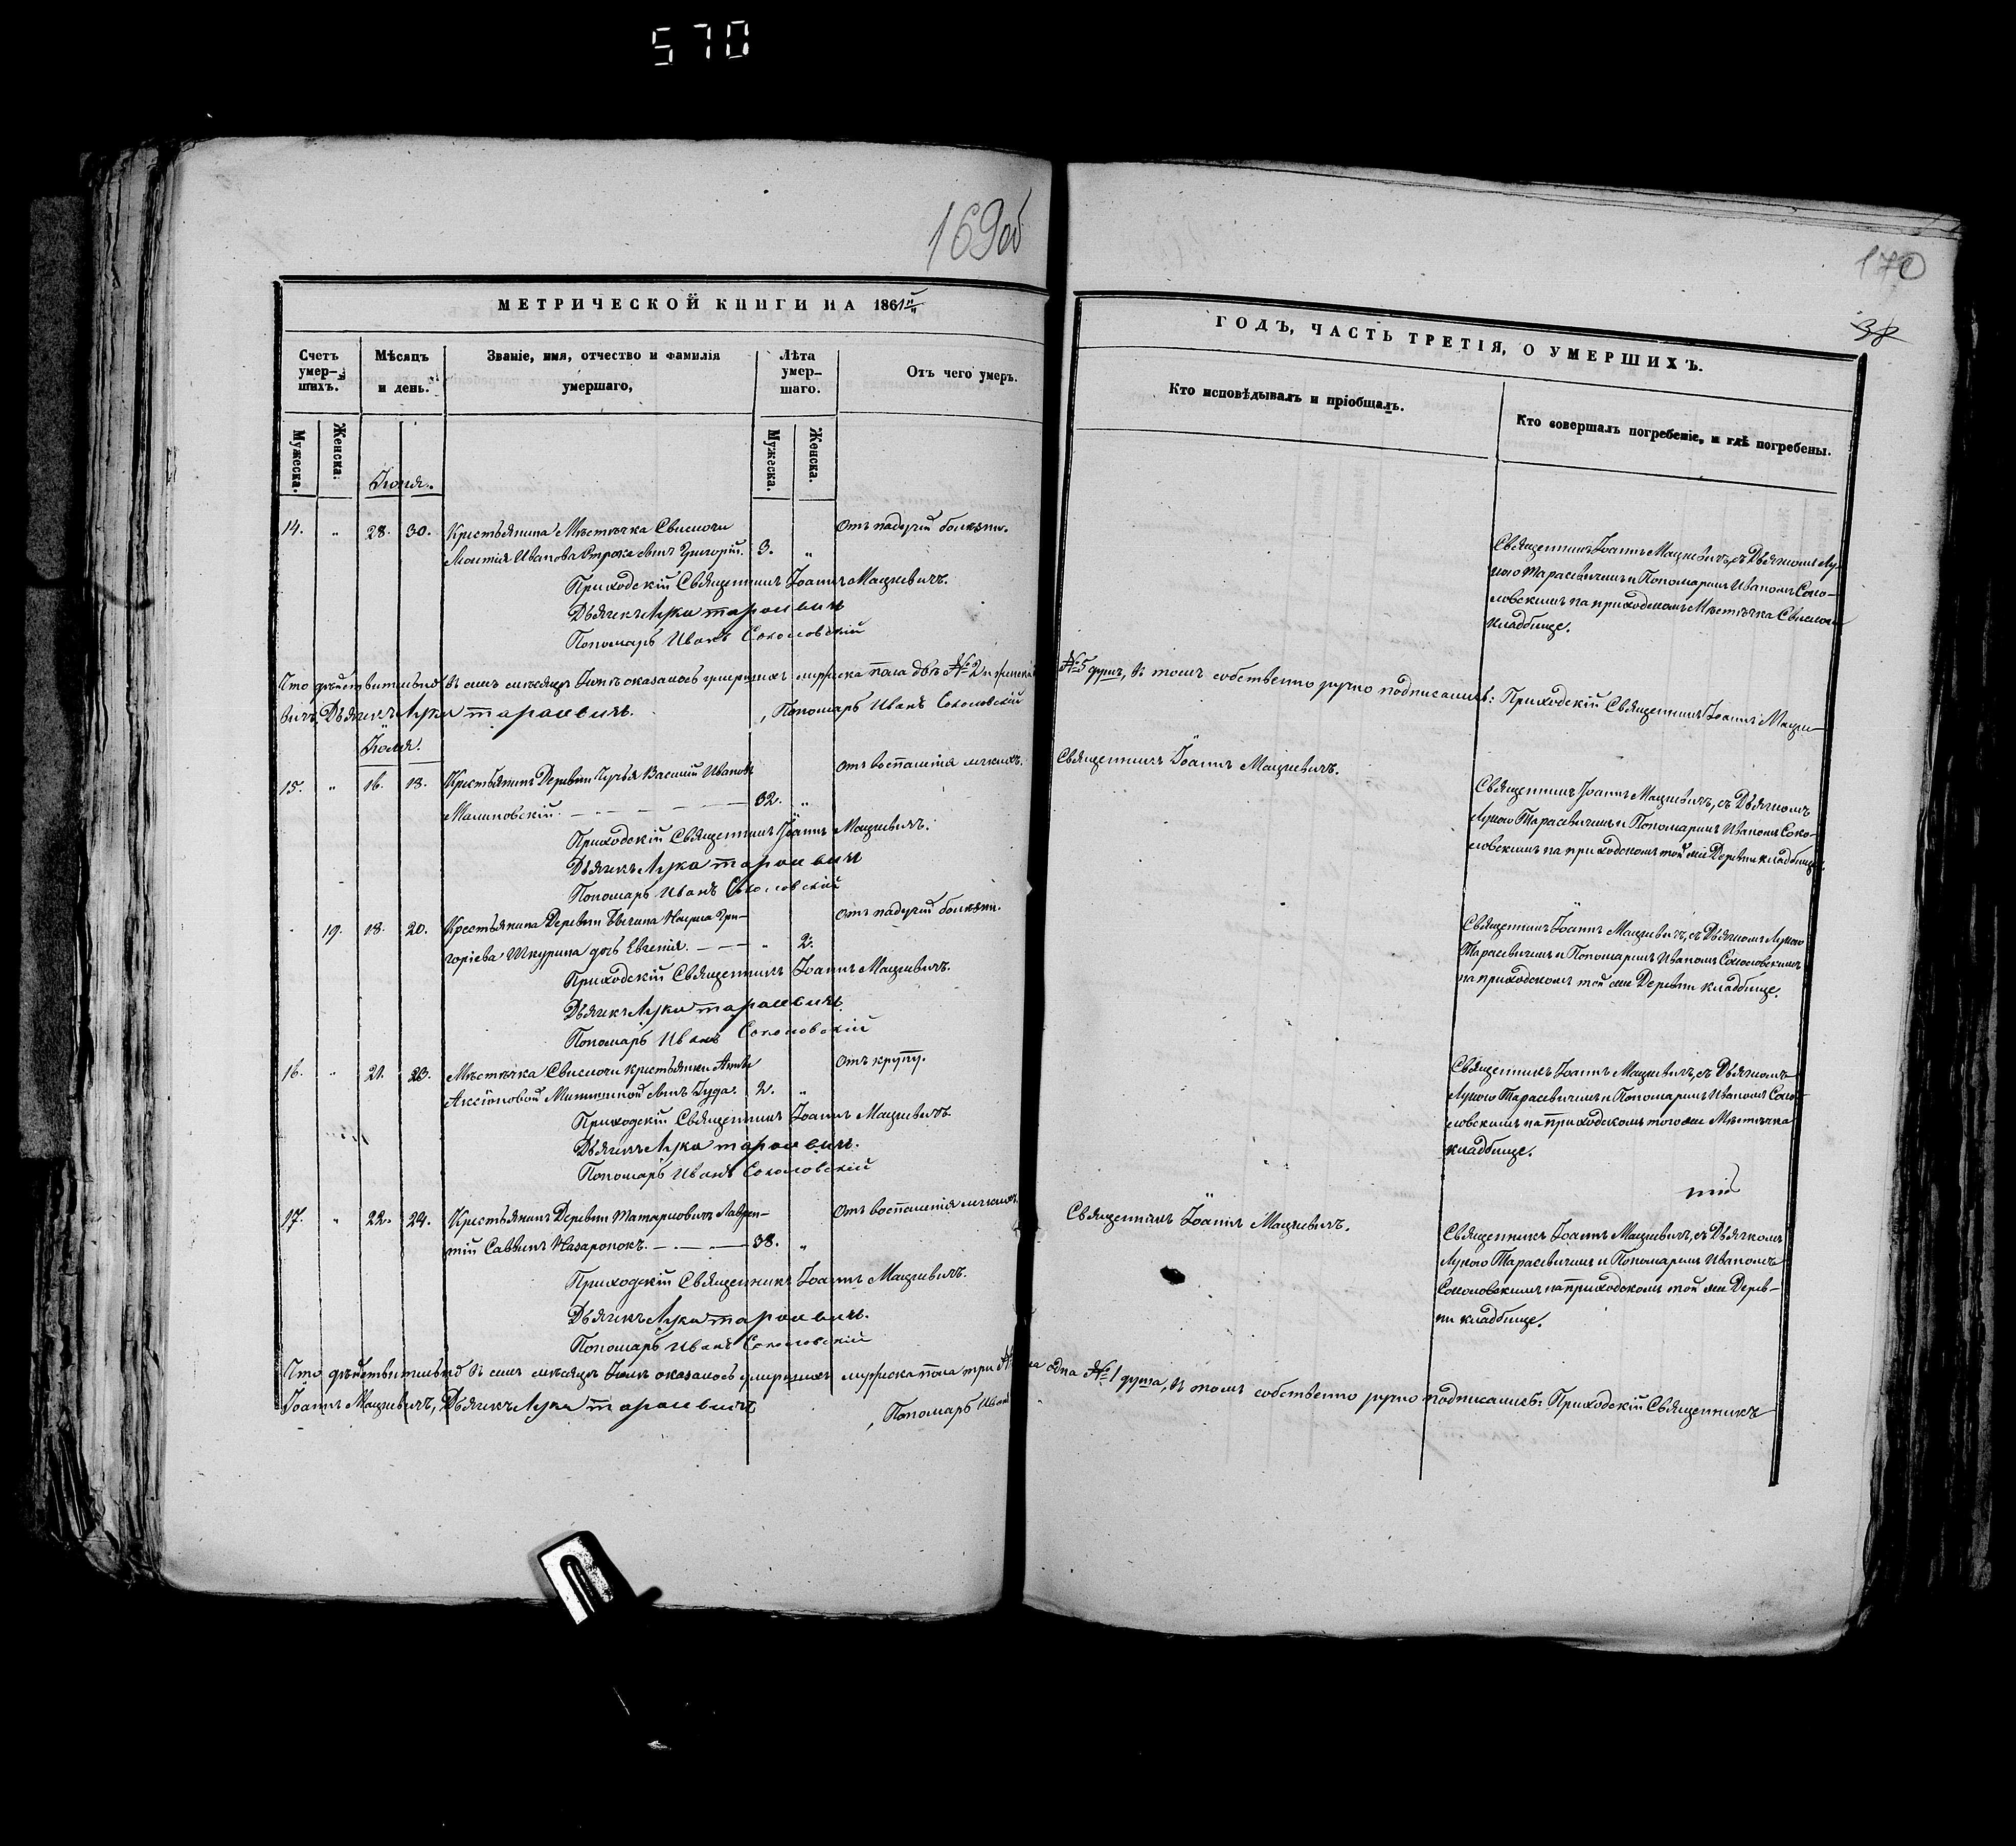 570
169об
170
38
МЕТРИЧЕСКОЙ КНИГИ НА 1861й
Счетъ умер-шихъ.
Мѣсяцъ и день.
Званіе, имя, отчество и фамилія умершаго,
Лѣта умер-шаго.
Отъ чего умеръ.
Мужеска.
Женска.
Мужеска.
Женска.
ГОДЪ, ЧАСТЬ ТРЕТІЯ, О УМЕРШИХЪ.
Кто исповѣдывалъ и пріобщалъ.
Кто совершалъ погребеніе, и гдѣ погребены.
Іюня.
14. „ 28. 30. Крестьянина Мѣстечка Свислочи Отъ падучей болезни.
Иванова Отрока сынъ Григорій. 3. „
Приходскій Священникъ Іоаннъ Мацкевичъ.
Дьячекъ Лука Тарасевичъ
Пономарь Иванъ Соколовскій
Священникъ Іоаннъ Мацкевичъ, съ Дьячкомъ Лу-
кою Тарасевичемъ и Пономаремъ Иваномъ Соко-
ловскимъ на приходскомъ Мѣстечка Свислочи
кладбище.
Что дѣйствительно въ семъ месяцѣ Іюнѣ оказалось умершихъ мужеска пола двѣ № 2 и женска № 5 душъ, въ томъ собственно ручно подписались: Приходскій Священникъ Іоаннъ Мацке-
вичъ, Дьячекъ Лука Тарасевичъ. , Пономарь Иванъ Соколовскій
Іюля.
15. „ 16. 18. Крестьянинъ Деревни Василій Ивановъ Отъ воспаленія легкихъ. Священникъ Іоаннъ Мацкевичъ.
Малиновскій. 32. „
Приходскій Священникъ Іоаннъ Мацкевичъ.
Дьячекъ Лука Тарасевичъ
Пономарь Иванъ Соколовскій
Священникъ Іоаннъ Мацкевичъ, съ Дьячкомъ
Лукою Тарасевичемъ и Пономаремъ Иваномъ Соко-
ловскимъ на приходскомъ той же Деревни кладбище.
„ 19. 18. 20. Крестьянина Деревни Бычина Наума Гри- Отъ падучей болезни.
горіева Шкурина дочь Евгенія. „ 2.
Приходскій Священникъ Іоаннъ Мацкевичъ.
Дьячекъ Лука Тарасевичъ.
Пономарь Иванъ Соколовскій
Священникъ Іоаннъ Мацкевичъ, съ Дьячкомъ Лукою
Тарасевичемъ и Пономаремъ Иваномъ Соколовскимъ
на приходскомъ той же Деревни кладбище.
16. „ 21. 23. Мѣстечка Свислочи крестьянки Отъ крупу.
Аксіоновой сынъ Іуда. 2. „
Приходскій Священникъ Іоаннъ Мацкевичъ.
Дьячекъ Лука Тарасевичъ.
Пономарь Иванъ Соколовскій
Священникъ Іоаннъ Мацкевичъ, съ Дьячкомъ
Лукою Тарасевичемъ и Пономаремъ Иваномъ Соко-
ловскимъ на приходскомъ того же Мѣстечка
кладбище.
17. „ 22. 24. Крестьянинъ Деревни Татарковичъ Лаврен- Отъ воспаленія легкихъ. Священникъ Іоаннъ Мацкевичъ.
тій Саввинъ Назаронокъ. 38. „
Приходскій Священникъ Іоаннъ Мацкевичъ.
Дьячекъ Лука Тарасевичъ.
Пономарь Иванъ Соколовскій
Священникъ Іоаннъ Мацкевичъ, съ Дьячкомъ
Лукою Тарасевичемъ и Пономаремъ Иваномъ
Соколовскимъ на приходскомъ той же Дерев-
ни кладбище.
Что дѣйствительно въ семъ месяцѣ Іюлѣ оказалось умершихъ мужеска пола три одна № 1 душа, въ томъ собственно ручно подписались: Приходскій Священникъ
Іоаннъ Мацкевичъ, Дьячекъ Лука Тарасевичъ , Пономарь Иванъ